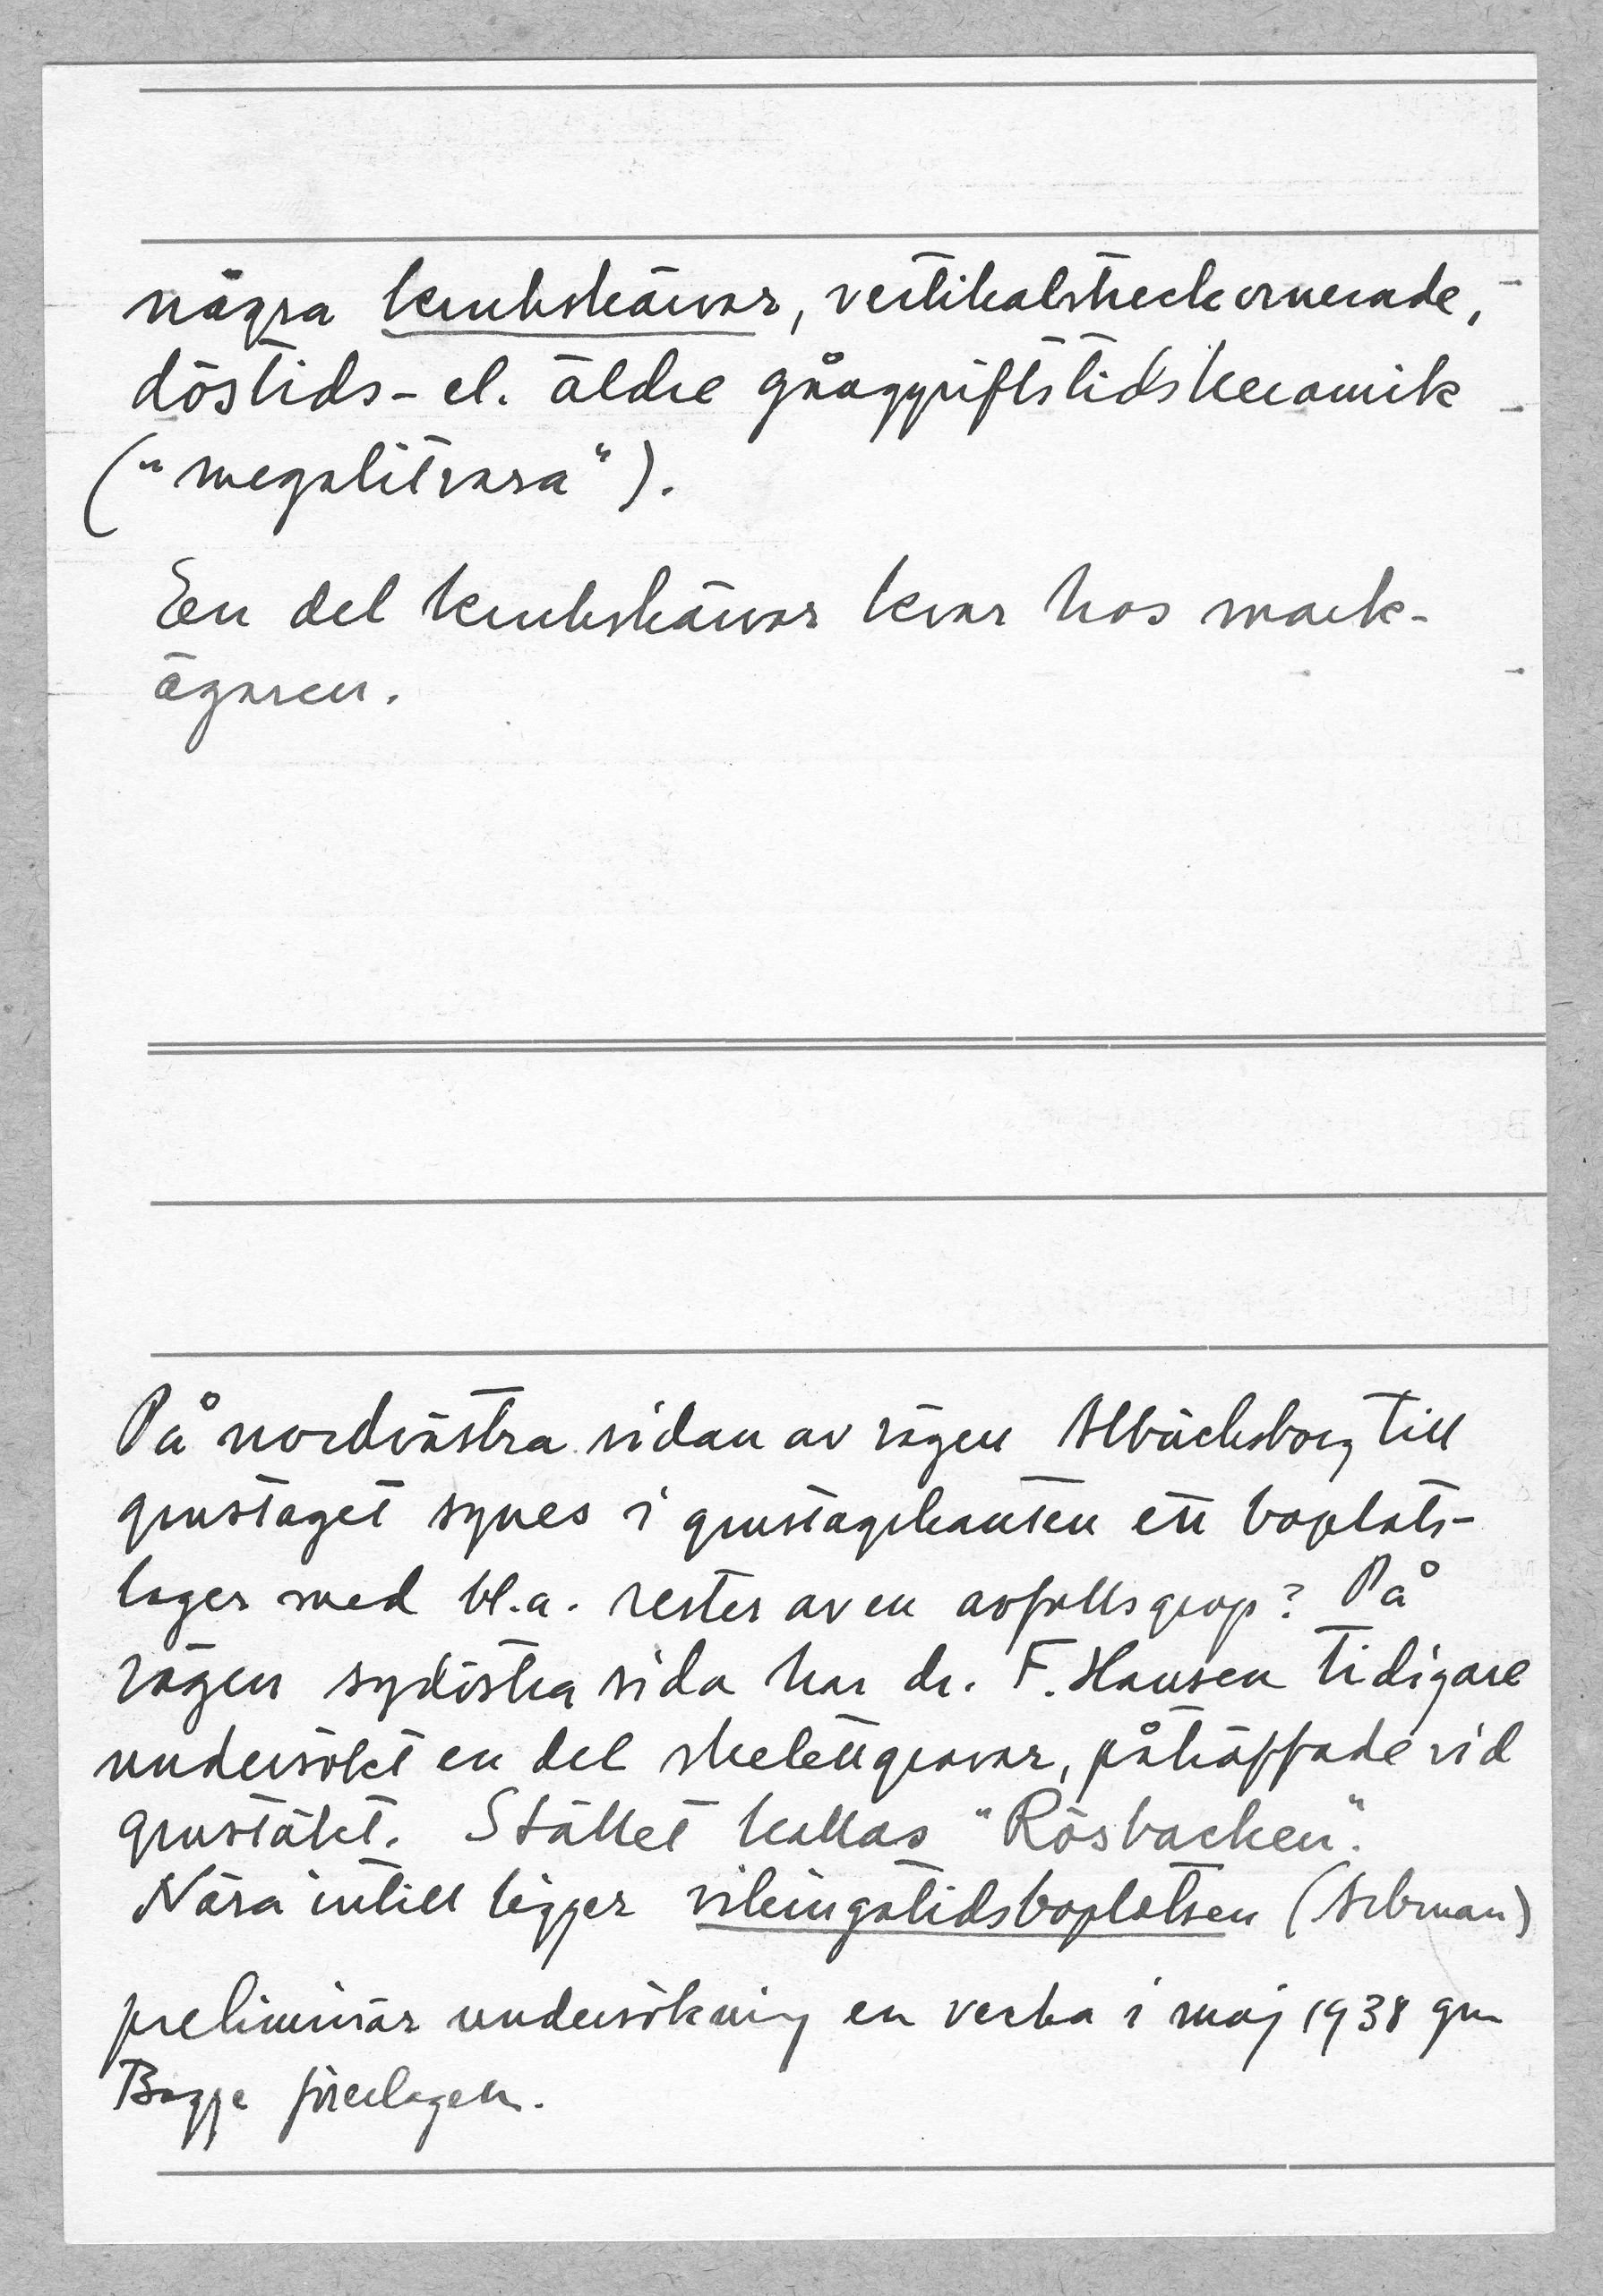 några krukskärvor, vertikalstreckornerade,
döstids- el. äldre gånggriftstidskeramik
("megalitvara").
En del krukskärvor kvar hos mark-
ägaren.
På nordvästra sidan av vägen Albäcksborg till
grustaget synes i grustagskanten ett boplats-
lager med bl.a. rester av en avfallsgrop? På
vägen sydöstra sida har dr. F. Hansen tidigare
undersökt en del skelettgravar, påträffade vid
grustäkt. Stället kallas "Rösbacken".
Nära intill ligger vikingatidsboplatsen (Arbman)
preliminär undersökning en vecka i maj 1938 gm
Bagge föreslagen.